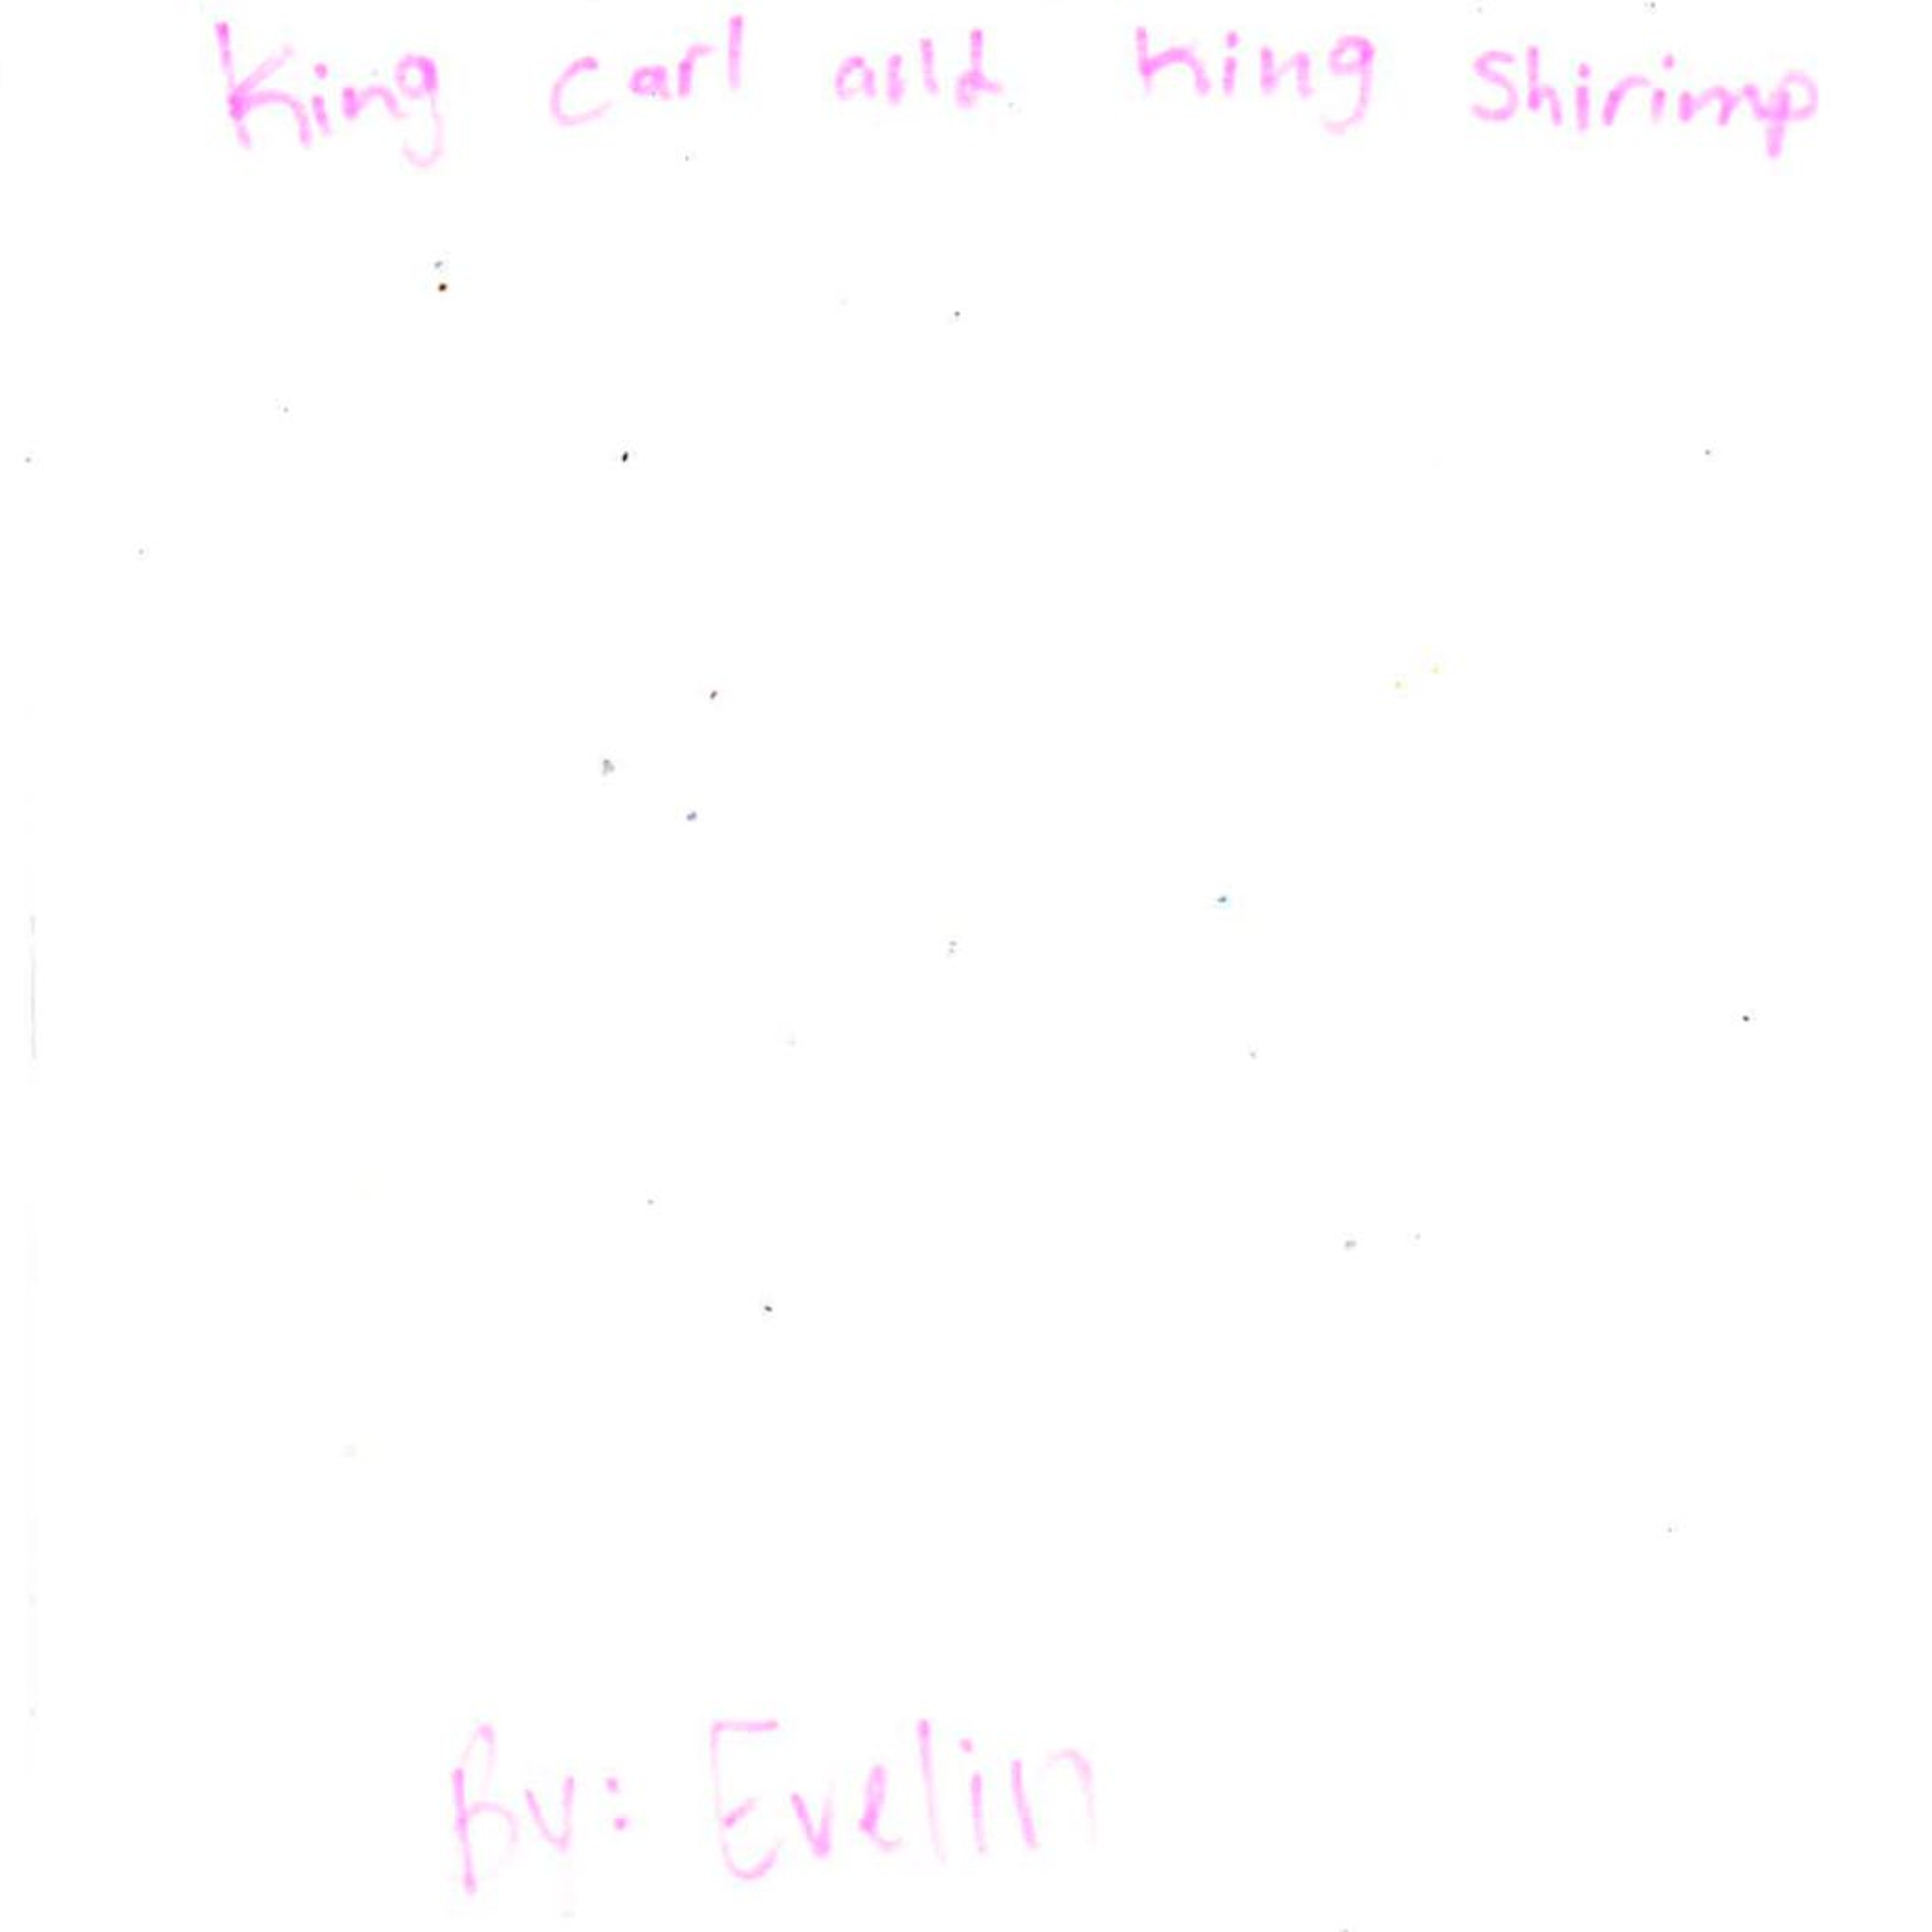 King carl and king Shirimp
By: Evelin